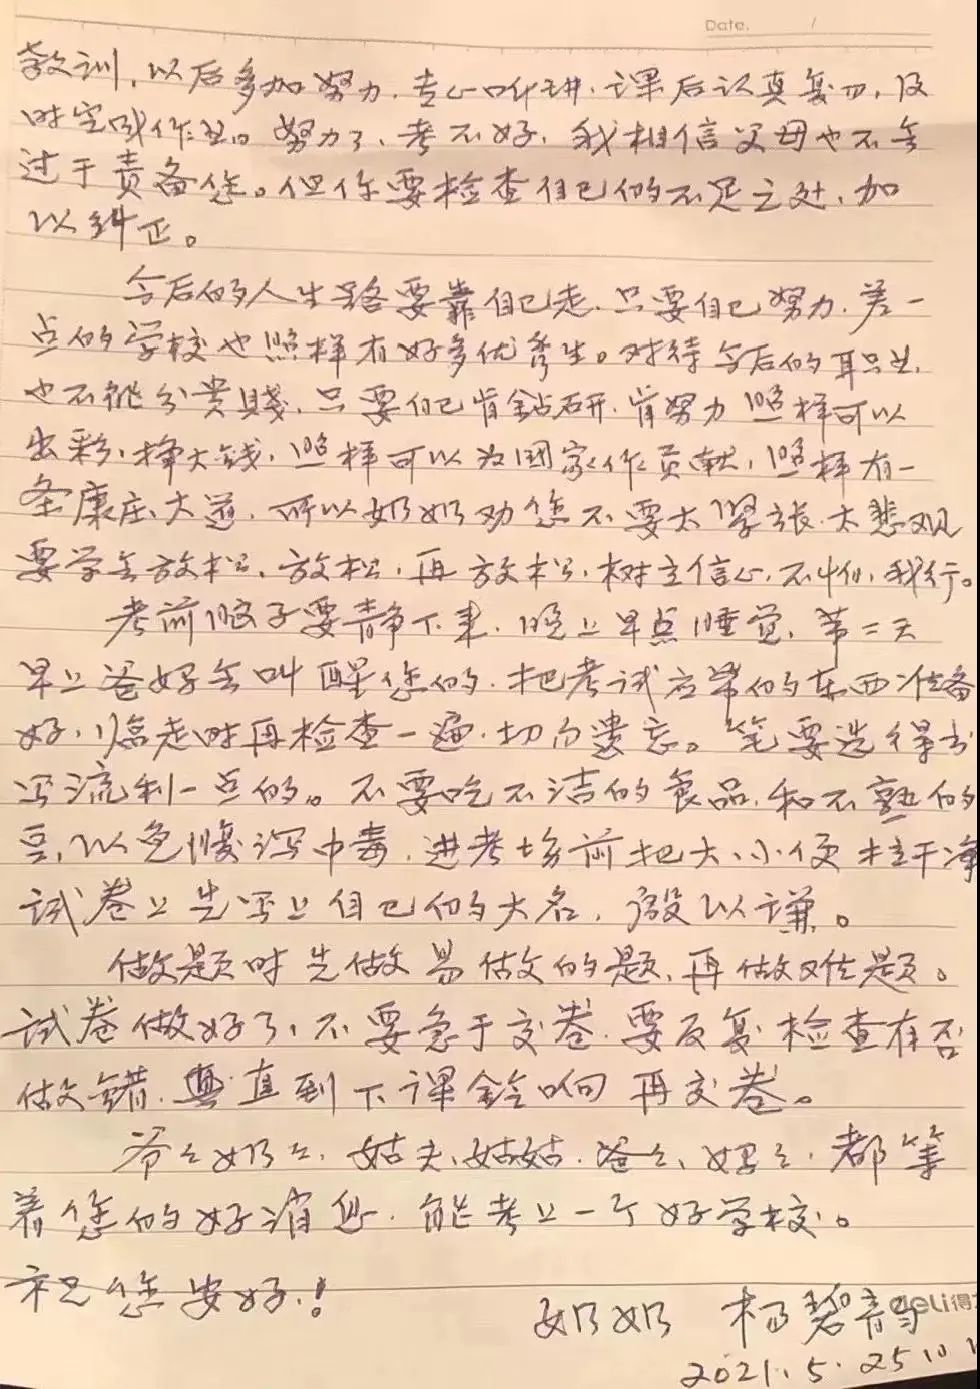 Date. /
教训，以后多加努力，专心听讲，课后认真复习，及
时完成作业。努力了，考不好，我相信父母也不会
过于责备您。但你要检查自己的不足之处，加
以纠正。
今后的人生路要靠自己走，只要自己努力，差一
点的学校也照样有好多优秀生。对待今后的职业，
也不能分贵贱，只要自己肯钻研，肯努力照样可以
出彩，挣大钱，照样可以为国家作贡献，照样有一
条康庄大道，所以奶奶劝您不要太紧张，太悲观
要学会放松，放松，再放松，树立信心，不怕，我行。
考前脑子要静下来，晚上早点睡觉，第二天
早上爸妈会叫醒您的，把考试应带的东西准备
好，临走时再检查一遍，切勿遗忘。笔要选择书
写流利一点的。不要吃不洁的食品，和不熟的
豆，以免腹泻中毒，进考场前把大、小便拉干净
试卷上先写上自己的大名，
做题时先做易做的题，再做难题。
试卷做好了，不要急于交卷，要反复检查有否
做错，直到下课铃响再交卷。
爷爷奶奶，姑夫、姑姑，爸爸、妈妈，都等
着您的好消息，能考上一个好学校。
祝您安好！
奶奶 杨碧青
deli得
2021.5.25